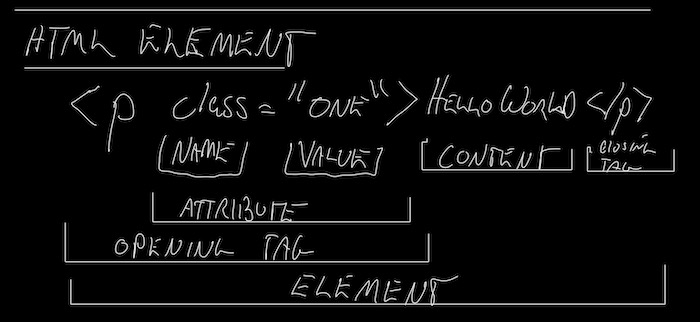 HTML ELEMENT
<p class="ONE">HELLO WORLD</p>
NAME VALUE CONTENT CLOSING TAG
ATTRIIBUTE
OPENING TAG
ELEMENT